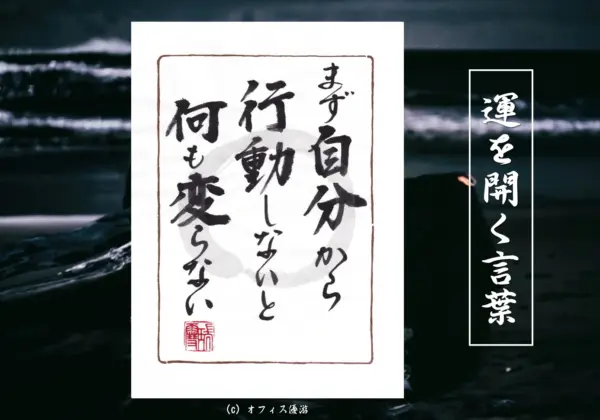 運を開く言葉
まず自分から
行動しないと
何も変らない
(C) オフィス優游